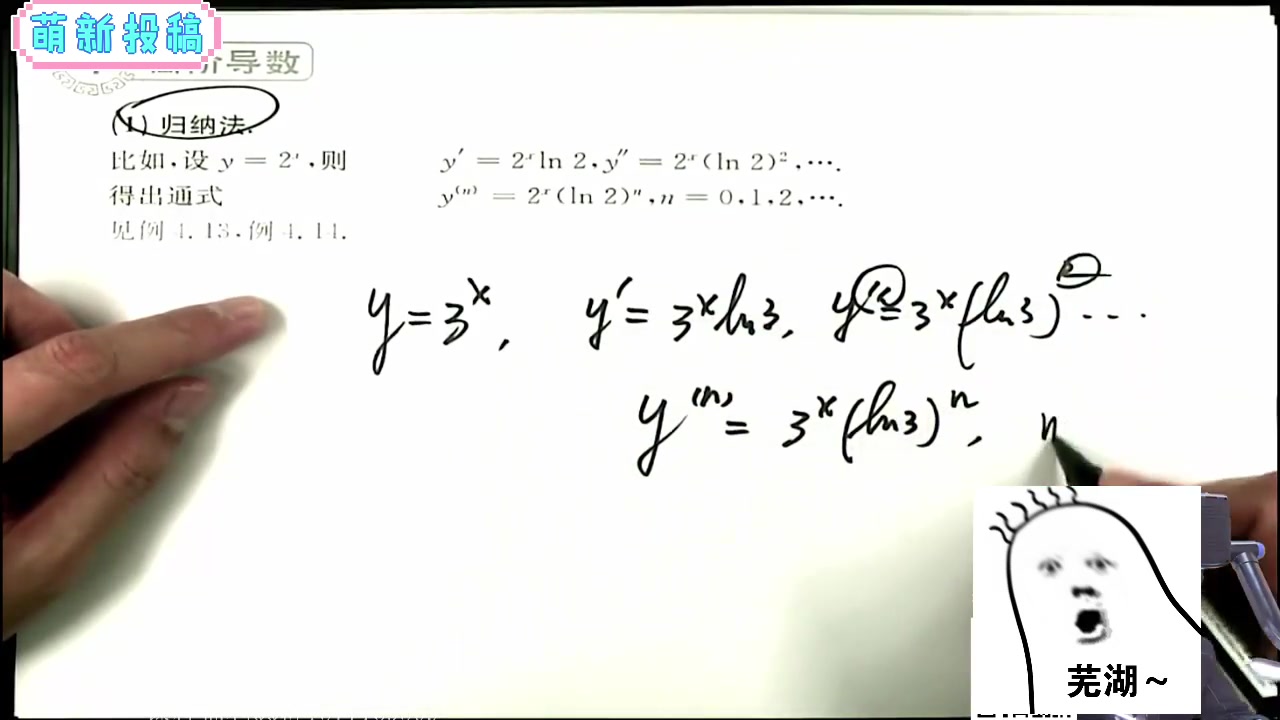 萌新投稿
阶导数
(1) 归纳法.
比如,设 y = 2ˣ,则 y′ = 2ˣln 2,y″ = 2ˣ(ln 2)²,….
得出通式 y⁽ⁿ⁾ = 2ˣ(ln 2)ⁿ,n = 0,1,2,….
见例 4.13,例 4.14.
y = 3ˣ, y′ = 3ˣ ln3, y″ = 3ˣ(ln3)² ...
y⁽ⁿ⁾ = 3ˣ(ln3)ⁿ, n
芜湖~